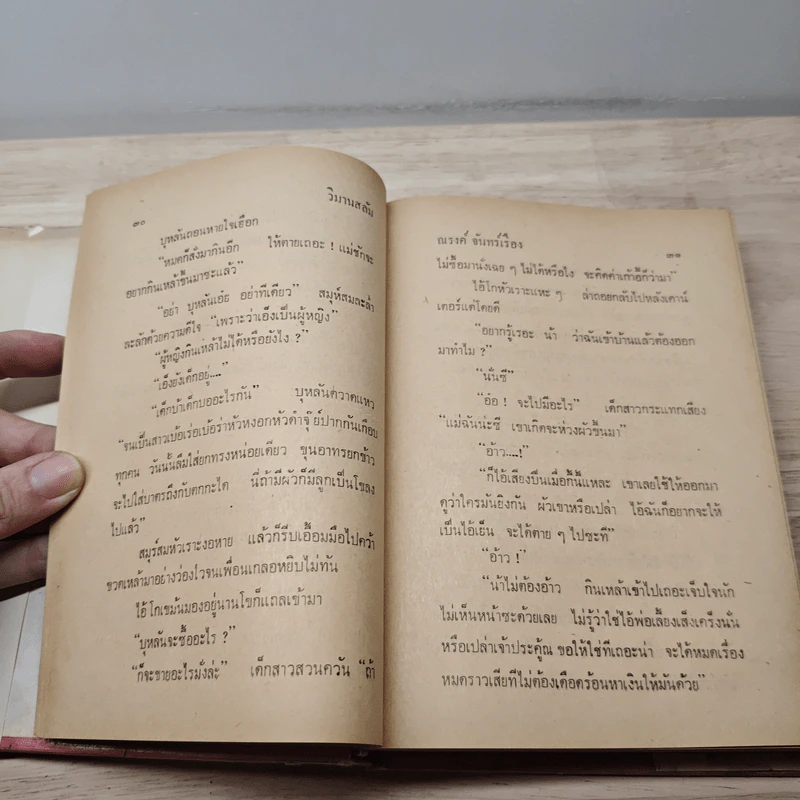 ๓๐
วิมานสลัม
บุหลันถอนหายใจเฮือก
“หมดก็สั่งมากินอีก ให้ตายเถอะ ! แม่ชักจะ
อยากกินเหล้าขึ้นมาซะแล้ว”
“อย่า บุหลันเอ๋ย อย่าทีเดียว” สมุห์สมละล่ำ
ละลักด้วยความดีใจ “เพราะว่าเอ็งเป็นผู้หญิง”
“ผู้หญิงกินเหล้าไม่ได้หรือยังไง ?”
“เอ็งยังเด็กอยู่....”
“เด็กบ้าเด็กบออะไรกัน” บุหลันตวาดแหว
“จนเป็นสาวเบ้อเร่อเบ้อร่าหัวหงอกหัวดำจุ๊ย์ปากกันเกือบ
ทุกคน วันนั้นลืมใส่ยกทรงหน่อยเดียว ขุนอาทรยกข้าว
จะไปใส่บาตรถึงกับตกกะได นี่ถ้ามีผัวก็มีลูกเป็นโขลง
ไปแล้ว”
สมุห์สมหัวเราะงอหาย แล้วก็รีบเอื้อมมือไปคว้า
ขวดเหล้ามาอย่างว่องไวจนเพื่อนเกลอหยิบไม่ทัน
ไอ้โกเขม้นมองอยู่นานโขก็แถลเข้ามา
“บุหลันจะซื้ออะไร ?”
“ก็จะขายอะไรมั่งล่ะ” เด็กสาวสวนควัน “ถ้า
ณรงค์ จันทร์เรือง
๓๑
ไม่ซื้อมานั่งเฉย ๆ ไม่ได้หรือไง จะคิดค่าเก้าอี้ก็ว่ามา”
ไอ้โกหัวเราะแหะ ๆ ล่าถอยกลับไปหลังเคาน์
เตอร์แต่โดยดี
“อยากรู้เรอะ น้า ว่าฉันเข้าบ้านแล้วต้องออก
มาทำไม ?”
“นั่นซี”
“อ๋อ ! จะไปมีอะไร” เด็กสาวกระแทกเสียง
“แม่ฉันน่ะซี เขาเกิดจะห่วงผัวขึ้นมา”
“อ้าว....!”
“ก็ไอ้เสียงปืนเมื่อกี้นี้แหละ เขาเลยใช้ให้ออกมา
ดูว่าใครมันยิงกัน ผัวเขาหรือเปล่า ไอ้ฉันก็อยากจะให้
เป็นไอ้เย็น จะได้ตาย ๆ ไปซะที”
“อ้าว !”
“น้าไม่ต้องอ้าว กินเหล้าเข้าไปเถอะเจ็บใจนัก
ไม่เห็นหน้าซะด้วยเลย ไม่รู้ว่าใช่ไอ้พ่อเลี้ยงเส็งเคร็งนั่น
หรือเปล่าเจ้าประคู้ณ ขอให้ใช่ทีเถอะน่า จะได้หมดเรื่อง
หมดราวเสียทีไม่ต้องเดือดร้อนหาเงินให้มันด้วย”